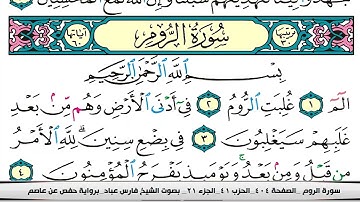 ترتيبها ٣٠ سُورَةُ الرُّومِ آياتها ٦٠
بِسْمِ ٱللَّهِ ٱلرَّحْمَٰنِ ٱلرَّحِيمِ
الٓمٓ ١ غُلِبَتِ ٱلرُّومُ ٢ فِىٓ أَدْنَى ٱلْأَرْضِ وَهُم مِّنۢ بَعْدِ
غَلَبِهِمْ سَيَغْلِبُونَ ٣ فِى بِضْعِ سِنِينَ ۗ لِلَّهِ ٱلْأَمْرُ
مِن قَبْلُ وَمِنۢ بَعْدُ ۚ وَيَوْمَئِذٍ يَفْرَحُ ٱلْمُؤْمِنُونَ ٤
سورة الروم _الصفحة ٤٠٤_ الحزب ٤١_ الجزء ٢١_ بصوت الشيخ فارس عباد_ برواية حفص عن عاصم